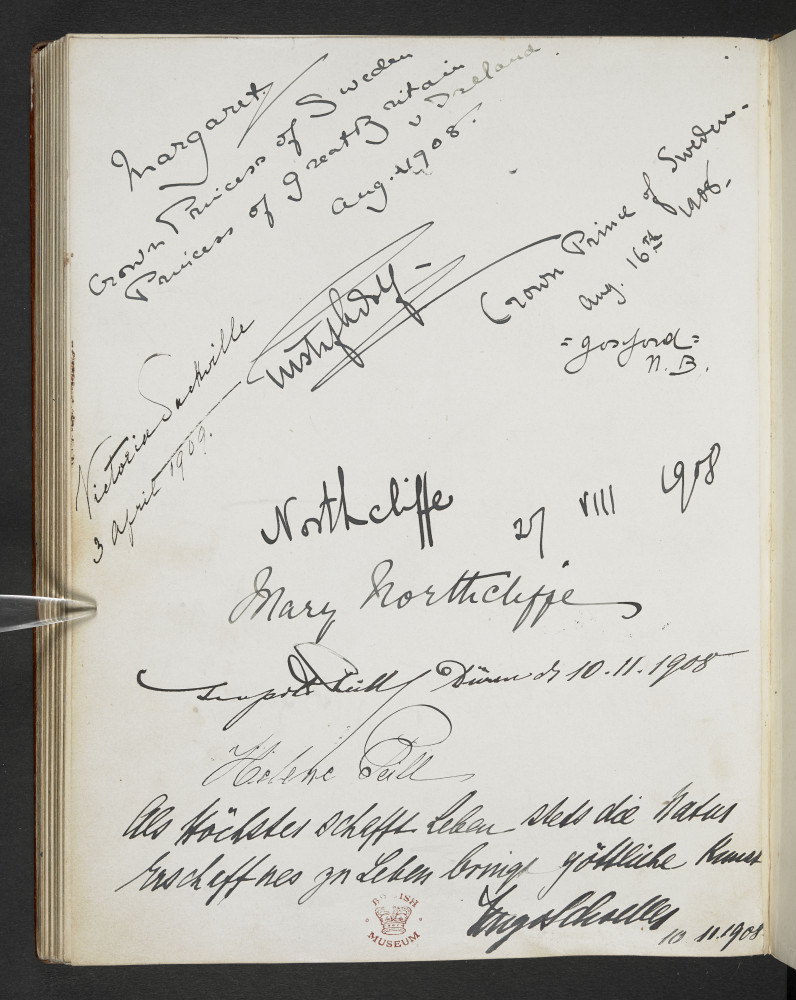 Margaret
Crown Princess of Sweden
Princess of Great Britain
& Ireland
Aug. 1908.
Gustaf Adolf
Crown Prince of Sweden.
Aug. 16th 1908.
= Gosford =
N.B.
Victoria Sackville
3 April 1909.
Northcliffe 27 VIII 1908
Mary Northcliffe
Leopold Peill Düren 10.11.1908
Helene Peill
Als Höchstes schafft Leben stets die Natur
Erschaffnes zu Leben bringt göttliche Kunst
Hugo Schoeller
10 11.1908
BRITISH
MUSEUM